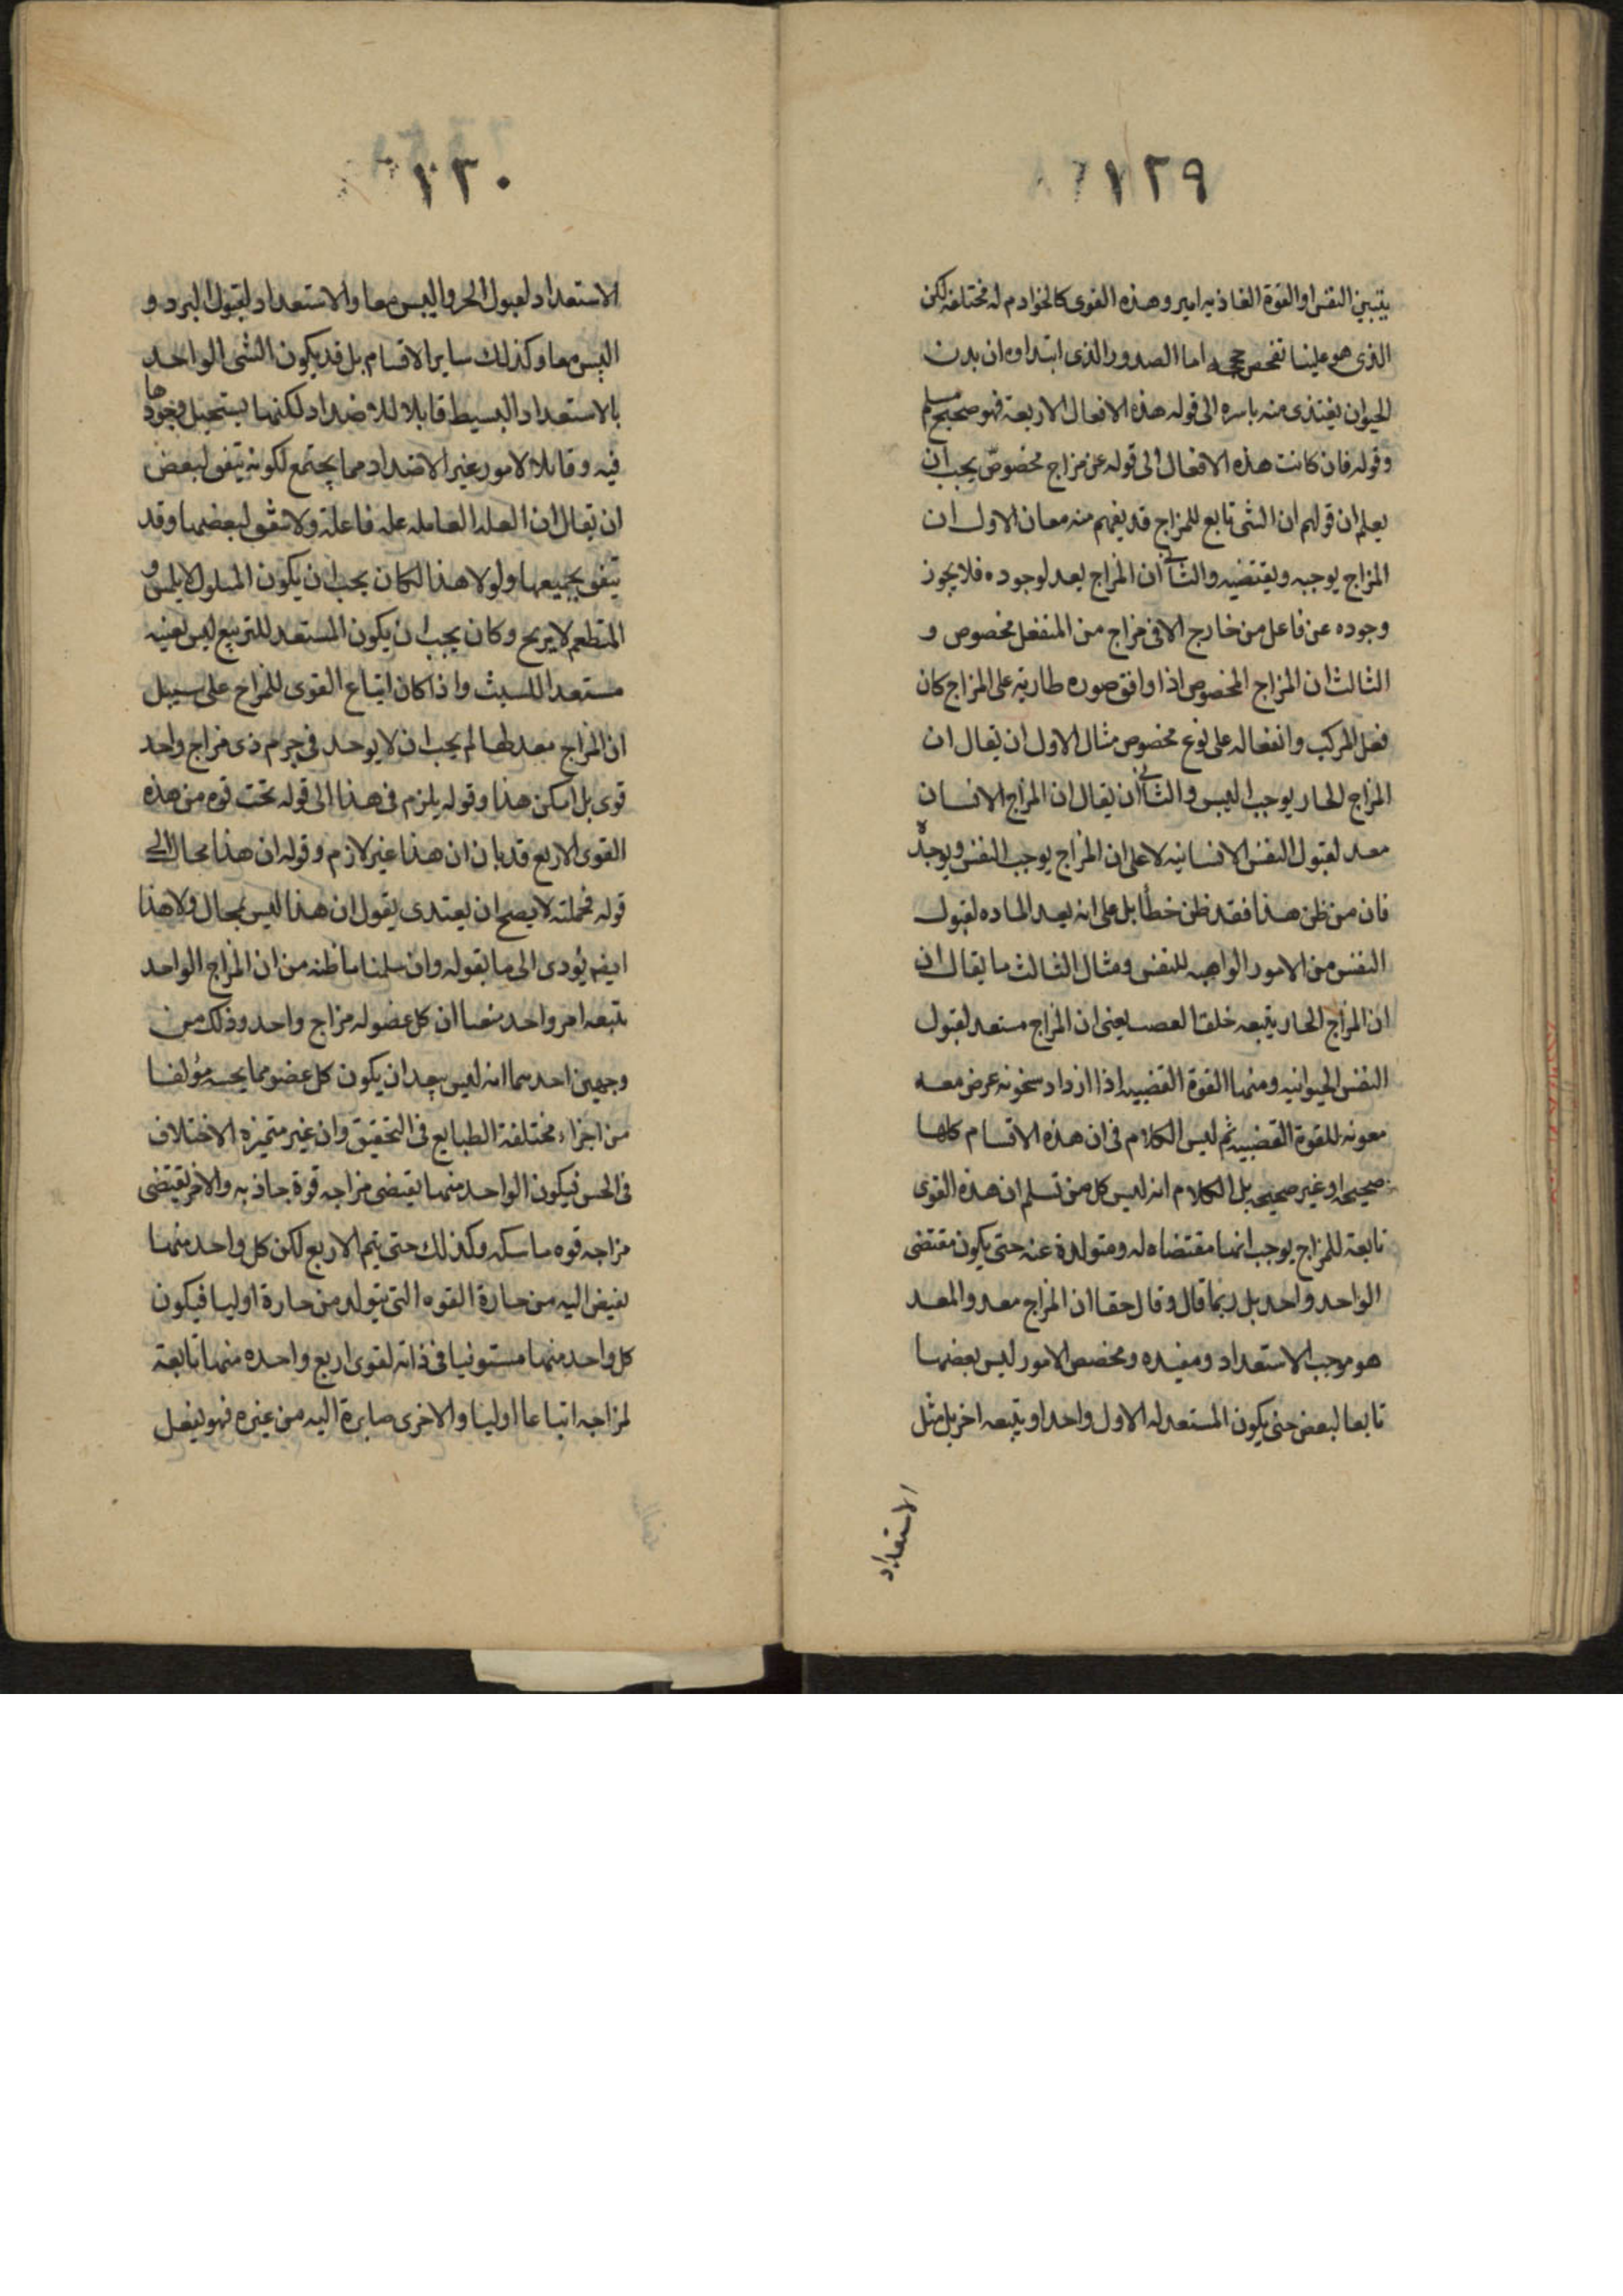 ١٢٩
يتبين النفس او القوة الغاذيه امير وهذه القوى كالخوادم له مختلفه لكن
الذى هو علينا تفحص حججه اما الصدور الذى ابتداوه ان بدن
الحيوان يغتذى منه باسره الى قوله هذه الافعال الاربعة فهو صحيح مسلم
وقوله فان كانت هذه الافعال الى قوله عن مزاج مخصوص يجب ان
يعلم ان قولهم ان الشى تابع للمزاج قد يفهم منه معان الاول ان
المزاج يوجبه ويقتضيه والثانى ان المزاج يعد لوجوده فلا يجوز
وجوده عن فاعل من خارج الا فى مزاج من المنفعل مخصوص و
الثالث ان المزاج المخصوص اذا وافق صوره طاريه على المزاج كان
فعل المركب وانفعاله على نوع مخصوص مثال الاول ان يقال ان
المزاج الحار يوجب اليبس والثانى ان يقال ان المزاج الانسان
معد لقبول النفس الانسانيه لا على ان المزاج يوجب النفس ويوجده
فان من ظن هذا فقد ظن خطأ بل على انه يعد الماده لقبول
النفس من الامور الواهبه للنفس ومثال الثالث ما يقال ان
ان المزاج الحار يتبعه خلقا لعصب يعنى ان المزاج مستعد لقبول
النفس الحيوانيه ومنها القوة الغضبيه اذا ازداد سخونه عرض معه
معونه للقوة الغضبيه ثم ليس الكلام فى ان هذه الاقسام كلها
صحيحه او غير صحيحه بل الكلام انه ليس كل من تسلم ان هذه القوى
تابعة للمزاج يوجب انها مقتضاه له ومتولدة عنه حتى يكون مقتضى
الواحد واحد بل ربما قال وقال حقا ان المزاج معد والمعد
هو موجب الاستعداد ومفيده ومخصص الامور ليس بعضها
تابعا لبعض حتى يكون المستعد له الاول واحدا ويتبعه اخر بل مثل
الاستعداد
١٣٠
الاستعداد لقبول الحر واليبس معا والاستعداد لقبول البرد و
اليبس معا وكذلك ساير الاقسام بل قد يكون الشى الواحد
بالاستعداد البسيط قابلا للاضداد لكنها يستحيل وجودها
فيه وقابلا لامور غير الاضداد مما يجتمع لكونه يتفق لبعض
ان يقال ان العله العامله عله فاعلة ولا يتفق لبعضها وقد
يتفق بجميعها ولولا هذا لكان يجب ان يكون المسلول لا يلمس و
المتطعم لا يريح وكان يجب ان يكون المستعد للتربيع ليس بعينه
مستعدا للتثليث واذا كان اتباع القوى للمزاج على سبيل
ان المزاج معد لها لم يجب ان لا يوجد فى جرم ذى مزاج واحد
قوى بل امكن هذا وقوله يلزم فى هذا الى قوله تحت قوه من هذه
القوى الاربع قد بان ان هذا غير لازم وقوله ان هذا محال الى
قوله فجملته لا يصح ان يغتدى يقول ان هذا ليس بمحال ولا هذا
ايضا يؤدى الى ما يقوله وان سلمنا ما ظنه من ان المزاج الواحد
يتبعه امر واحد منعنا ان كل عضو له مزاج واحد وذلك من
وجهين احدهما انه ليس يبعد ان يكون كل عضو مما يحسه مؤلفا
من اجزاء مختلفة الطبايع فى التحقيق وان غير متميزه الاختلاف
فى الحس فيكون الواحد منها يقتضى مزاجه قوة جاذبه والاخر يقتضى
مزاجه قوه ماسكه وكذلك حتى يتم الاربع لكن كل واحد منها
يفيض اليه من جارة القوه التى يتولد من جارة اوليا فيكون
كل واحد منها مستوفيا فى ذاته لقوى اربع واحده منها تابعة
لمزاجه اتباعا اوليا والاخرى صايرة اليه من غيره فهو يفعل